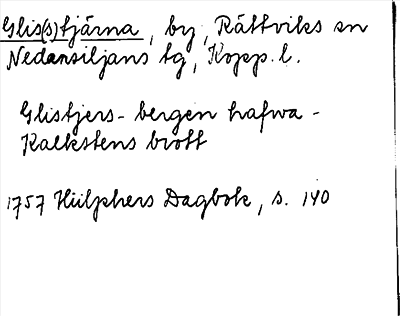 Glis(s)tjärna, by, Rättviks sn
Nedansiljans tg, Kopp. l.
Glistjers-bergen hafwa -
Kalkstens brott
1757 Hülphers Dagbok, s. 140